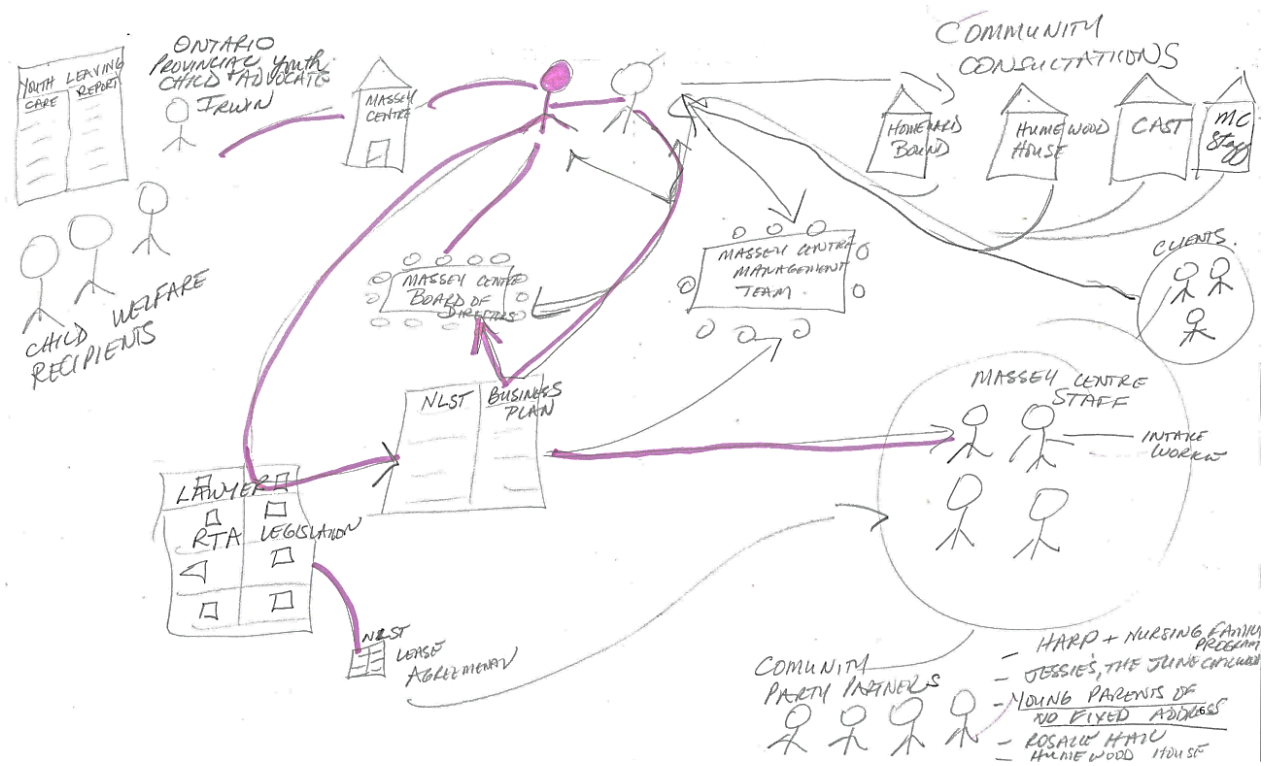 YOUTH LEAVING
CARE REPORT
ONTARIO
PROVINCIAL YOUTH
CHILD + ADVOCATE
IRWIN
MASSEY
CENTRE
COMMUNITY
CONSULTATIONS
HOMEWARD
BOUND
HUMEWOOD
HOUSE
CAST
MC
Staff
CLIENTS.
CHILD WELFARE
RECIPIENTS
MASSEY CENTRE
BOARD OF
DIRECTORS
MASSEY CENTRE
MANAGEMENT
TEAM
NLST
BUSINESS
PLAN
MASSEY CENTRE
STAFF
INTAKE
WORKER
LAWYER
RTA LEGISLATION
NLST
LEASE
AGREEMENT
COMUNITY
PARTY PARTNERS
- HARP + NURSING FAMILY
PROGRAM
- JESSIE'S, THE JUNE
- YOUNG PARENTS OF
NO FIXED ADDRESS
- ROSALIE HALL
- HUMEWOOD HOUSE